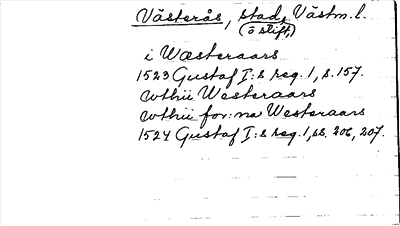 Västerås, stad, Västm.l.
(o stift,)
i Wæsteraars
1523 Gustaf I:s reg. 1, s. 157.
wthii Westeraars
wthii for:na Westeraars
1524 Gustaf I:s reg. 1, ss. 206, 207.